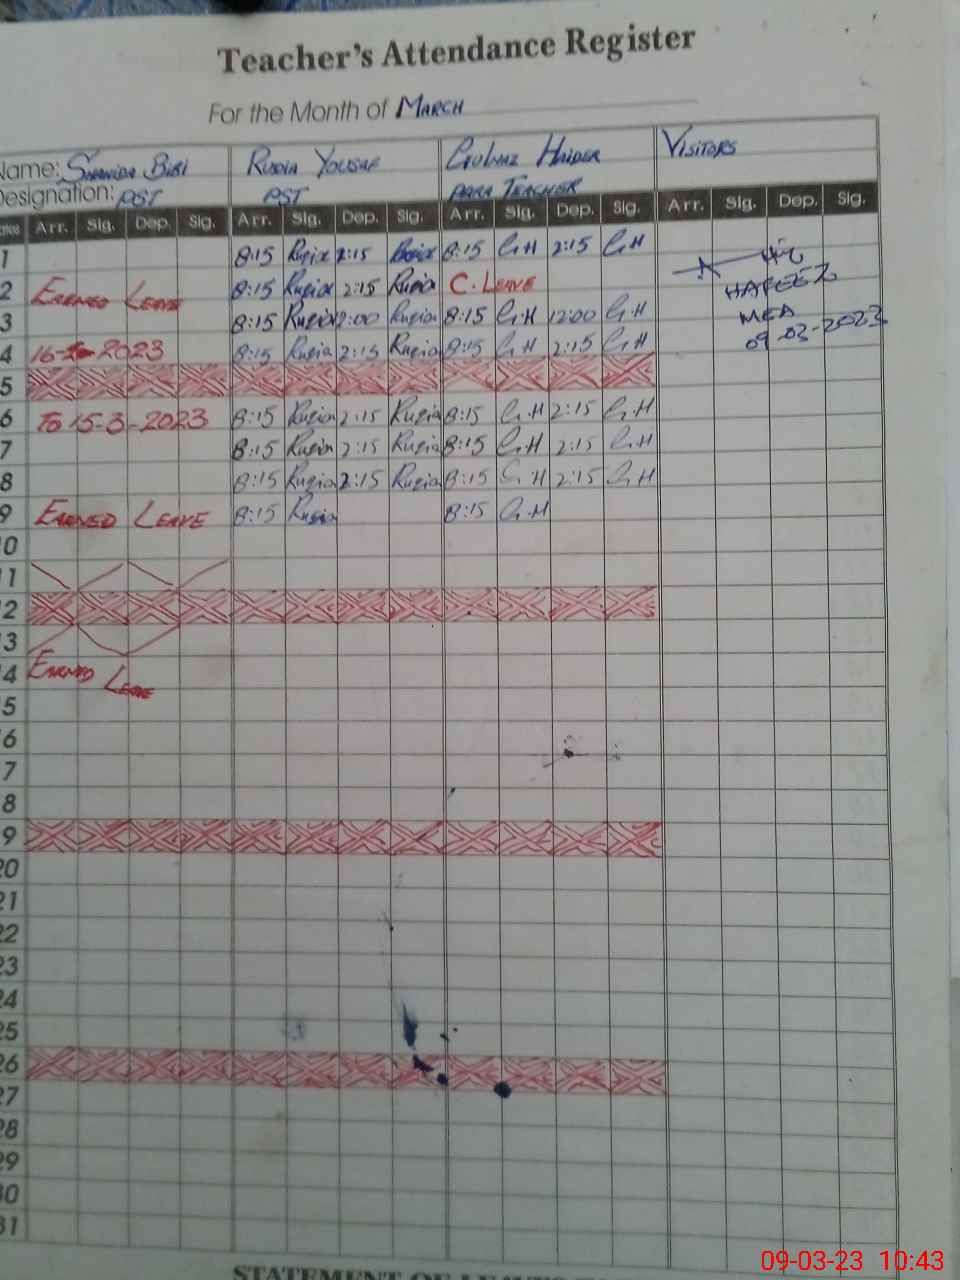 Teacher's Attendance Register
For the Month of MARCH
Name: BIBI RUQIA YOUSAF GULNAZ HAIDER VISITORS
Designation: PST PST PARA TEACHER
Arr. Sig. Dep. Sig. Arr. Sig. Dep. Sig. Arr. Sig. Dep. Sig. Arr. Sig. Dep. Sig.
1 8:15 Ruqia 2:15 Ruqia 8:15 G.H 2:15 G.H
2 EARNED LEAVE 8:15 Ruqia 2:15 Ruqia C. LEAVE HAFEEZ
3 8:15 Ruqia 12:00 Ruqia 8:15 G.H 12:00 G.H MEA
4 2023 8:15 Ruqia 2:15 Ruqia 8:15 G.H 2:15 G.H 09-03-2023
5
6 To 15-3-2023 8:15 Ruqia 2:15 Ruqia 8:15 G.H 2:15 G.H
7 8:15 Ruqia 2:15 Ruqia 8:15 G.H 2:15 G.H
8 8:15 Ruqia 2:15 Ruqia 8:15 G.H 2:15 G.H
9 EARNED LEAVE 8:15 Ruqia 8:15 G.H
10
11
12
13
14 EARNED LEAVE
5
6
7
8
9
20
21
22
23
24
25
26
27
28
29
30
31
STATEMENT OF
09-03-23 10:43